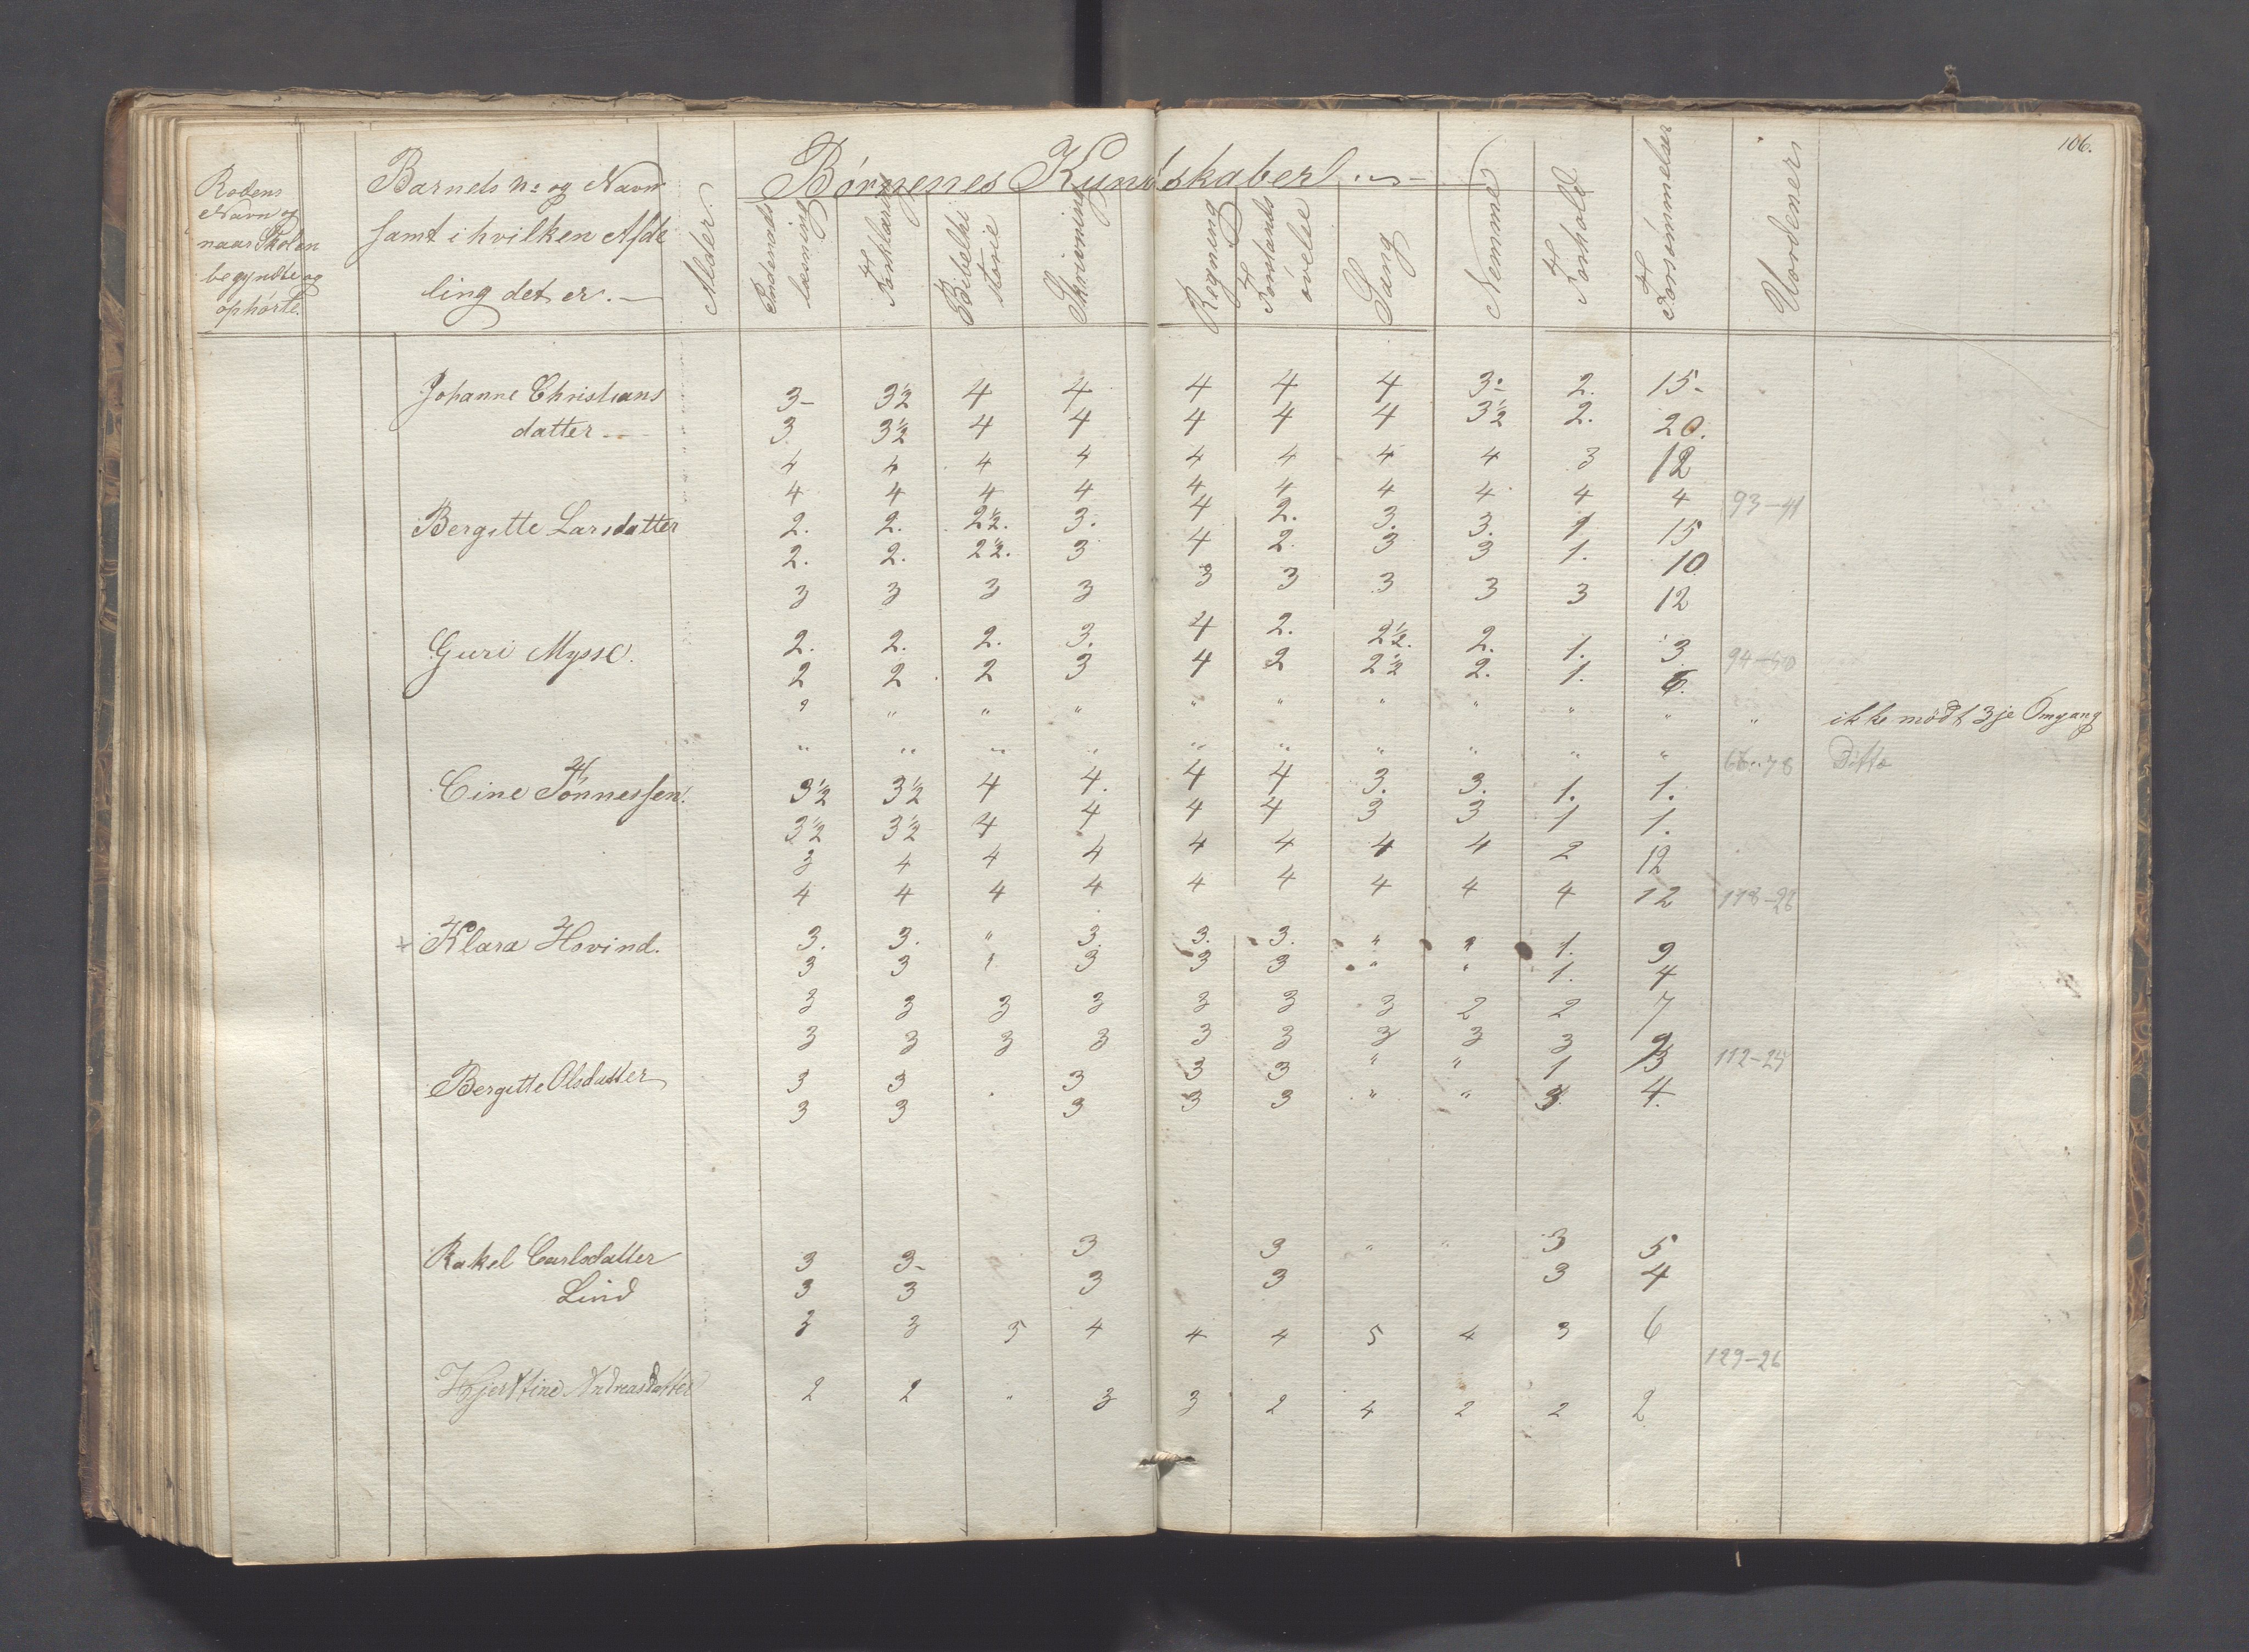 106.
Rodens
Navn og
naar Skolen
begyndte og
ophørte.
Barnets No og Navn
samt i hvilken Afde
ling det er. —
Alder.
Børnenes Kundskaber
Indenads
læsning
Forklaring
Bibelhi
storie
Skrivning
Regning
Forstands
øvelse
Sang
Nemme
Forhold
Forsømmelser
Johanne Christians 3 - 3½ 4 4 4 4 4 3 - 2. 15 -
datter 3 3½ 4 4 4 4 4 3½ 2. 20.
4 4 4 4 4 4 4 4 3 12
4 4 4 4 4 4 4 4 4 4 93-41
Bergitte Larsdatter 2. 2. 2½. 3. 4 2. 3. 3. 1 15
2. 2. 2½. 3 4 2. 3 3 1. 10
3 3 3 3 3 3 3 3 3 12
Guri Mysse. 2. 2. 2. 3. 4 2. 2½. 2. 1. 3
2 2 2 3 4 2 2½ 2. 1. 94-40
" " " " " " " " " " " ikke mødt 3je Omgang
" " " " " " " " " " 66-78 Ditto
Cine Tønnessen. 3½ 3½ 4 4. 4 4 3. 3. 1. 1.
3½ 3½ 4 4 4 4 3 3 1 1.
3 4 4 4 4 4 4 4 2 12
4 4 4 4 4 4 4 4 4 12 118-26
+ Klara Hovind. 3. 3. " 3. 3. 3. " " 1. 9
3 3 " 3 3 3 " " 1. 4
3 3 3 3 3 3 3 2 2 7
3 3 3 3 3 3 3 3 3 9
Bergitte Olsdatter 3 3 3 3 3 " " 1 13 112-24
3 3 . 3 3 3 " " 3. 4.
Rakel Carlsdatter 3 3 - 3 3 " " 3 5
Lind 3 3 3 3 3 4
3 3 5 4 4 4 5 4 3 6
129-26
Kjerstine Andreasdatter 2 2 " 3 3 2 4 2 2 2